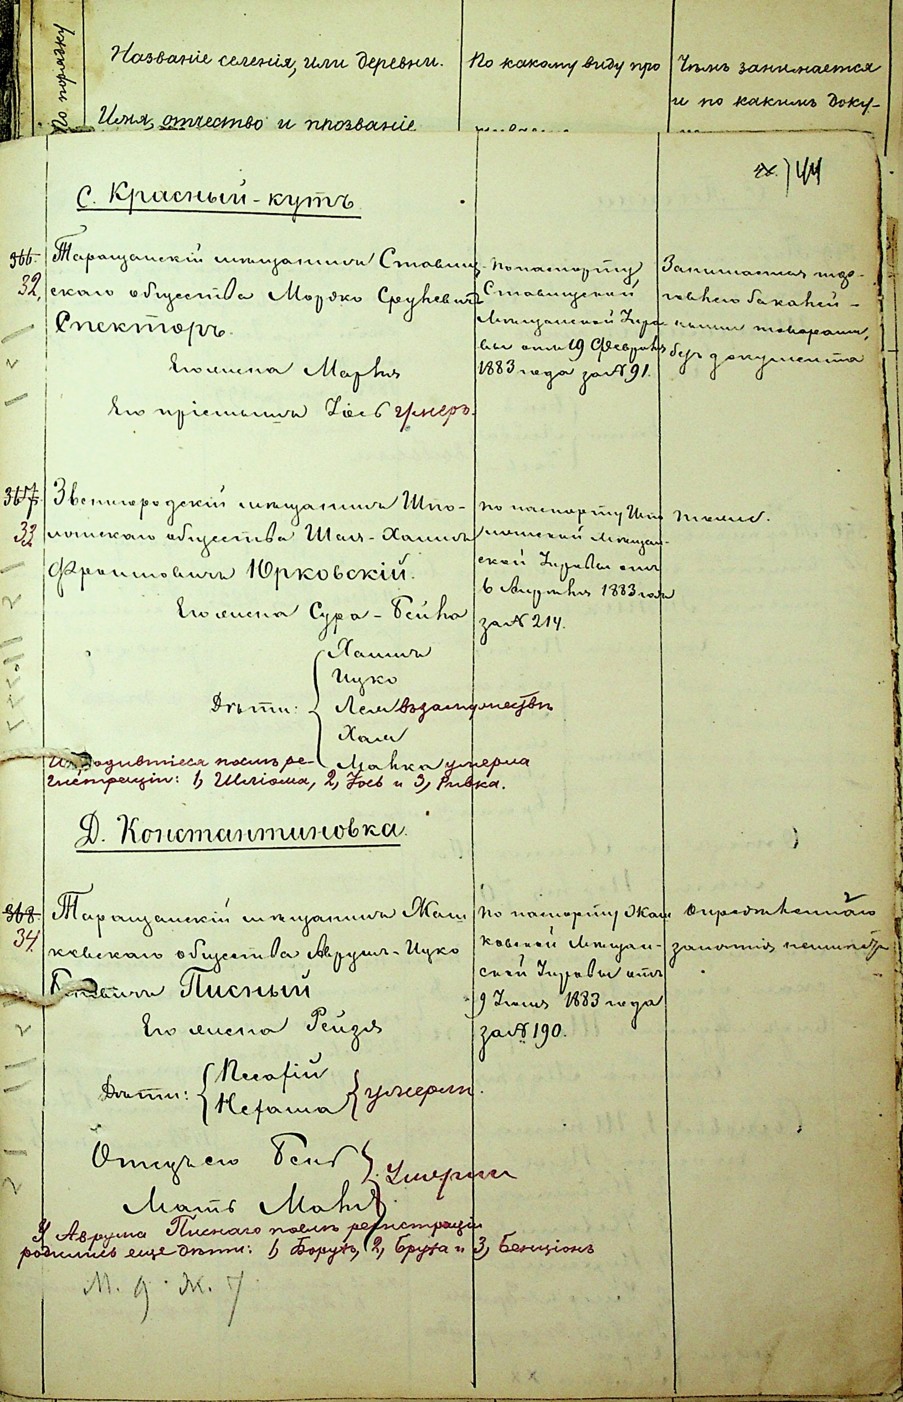 По порядку
Названіе селенія, или деревни.
Имя, отчество и прозваніе
По какому виду про
Чѣмъ занимается
и по какимъ доку-
44
С. Красный-кутъ
366.
32.
Таращанскій мѣщанинъ Ставищ-
скаго общества Мордко
Спекторъ.
Его жена Марья
Его пріемышъ Іось умеръ.
По паспорту
Ставищской
Мѣщанской Упра-
вы отъ 19 Февраля
1883 года за № 91.
Занимается тор-
говлею бакалей-
ными товарами,
безъ документа
367.
33
Звенигородскій мѣщанинъ Шпо-
лянскаго общества Шая-Хаимъ
Юрковскій.
Его жена Сура-Бейла
Дѣти:
Хаимъ
Ицко
Лея въ замужествѣ
Хая
Малка умерла
Родившіеся послѣ ре-
гистраціи: 1, Шліома, 2, Іось и 3, Ривка.
по паспорту Шпо
лянской Мѣщан-
ской Управы отъ
6 Апрѣля 1883 года
за № 214.
тоже.
Д. Константиновка.
368.
34
Таращанскій мѣщанинъ Жаш
ковскаго общества Аврумъ-Ицко
Писный
Его жена Рейзя
Дѣти:
Нехама
умерли.
Отецъ его Бенъ
Мать Маля
Умерли
У Аврума Писнаго послѣ регистраціи
родились еще дѣти: 1, Борухъ, 2, Бруха и 3, Бенціонъ
М. 9 Ж. 7
по паспорту Жаш
ковской Мѣщан-
ской Управы отъ
9 Іюня 1883 года
за № 190.
опредѣленнаго
занятія не имѣетъ